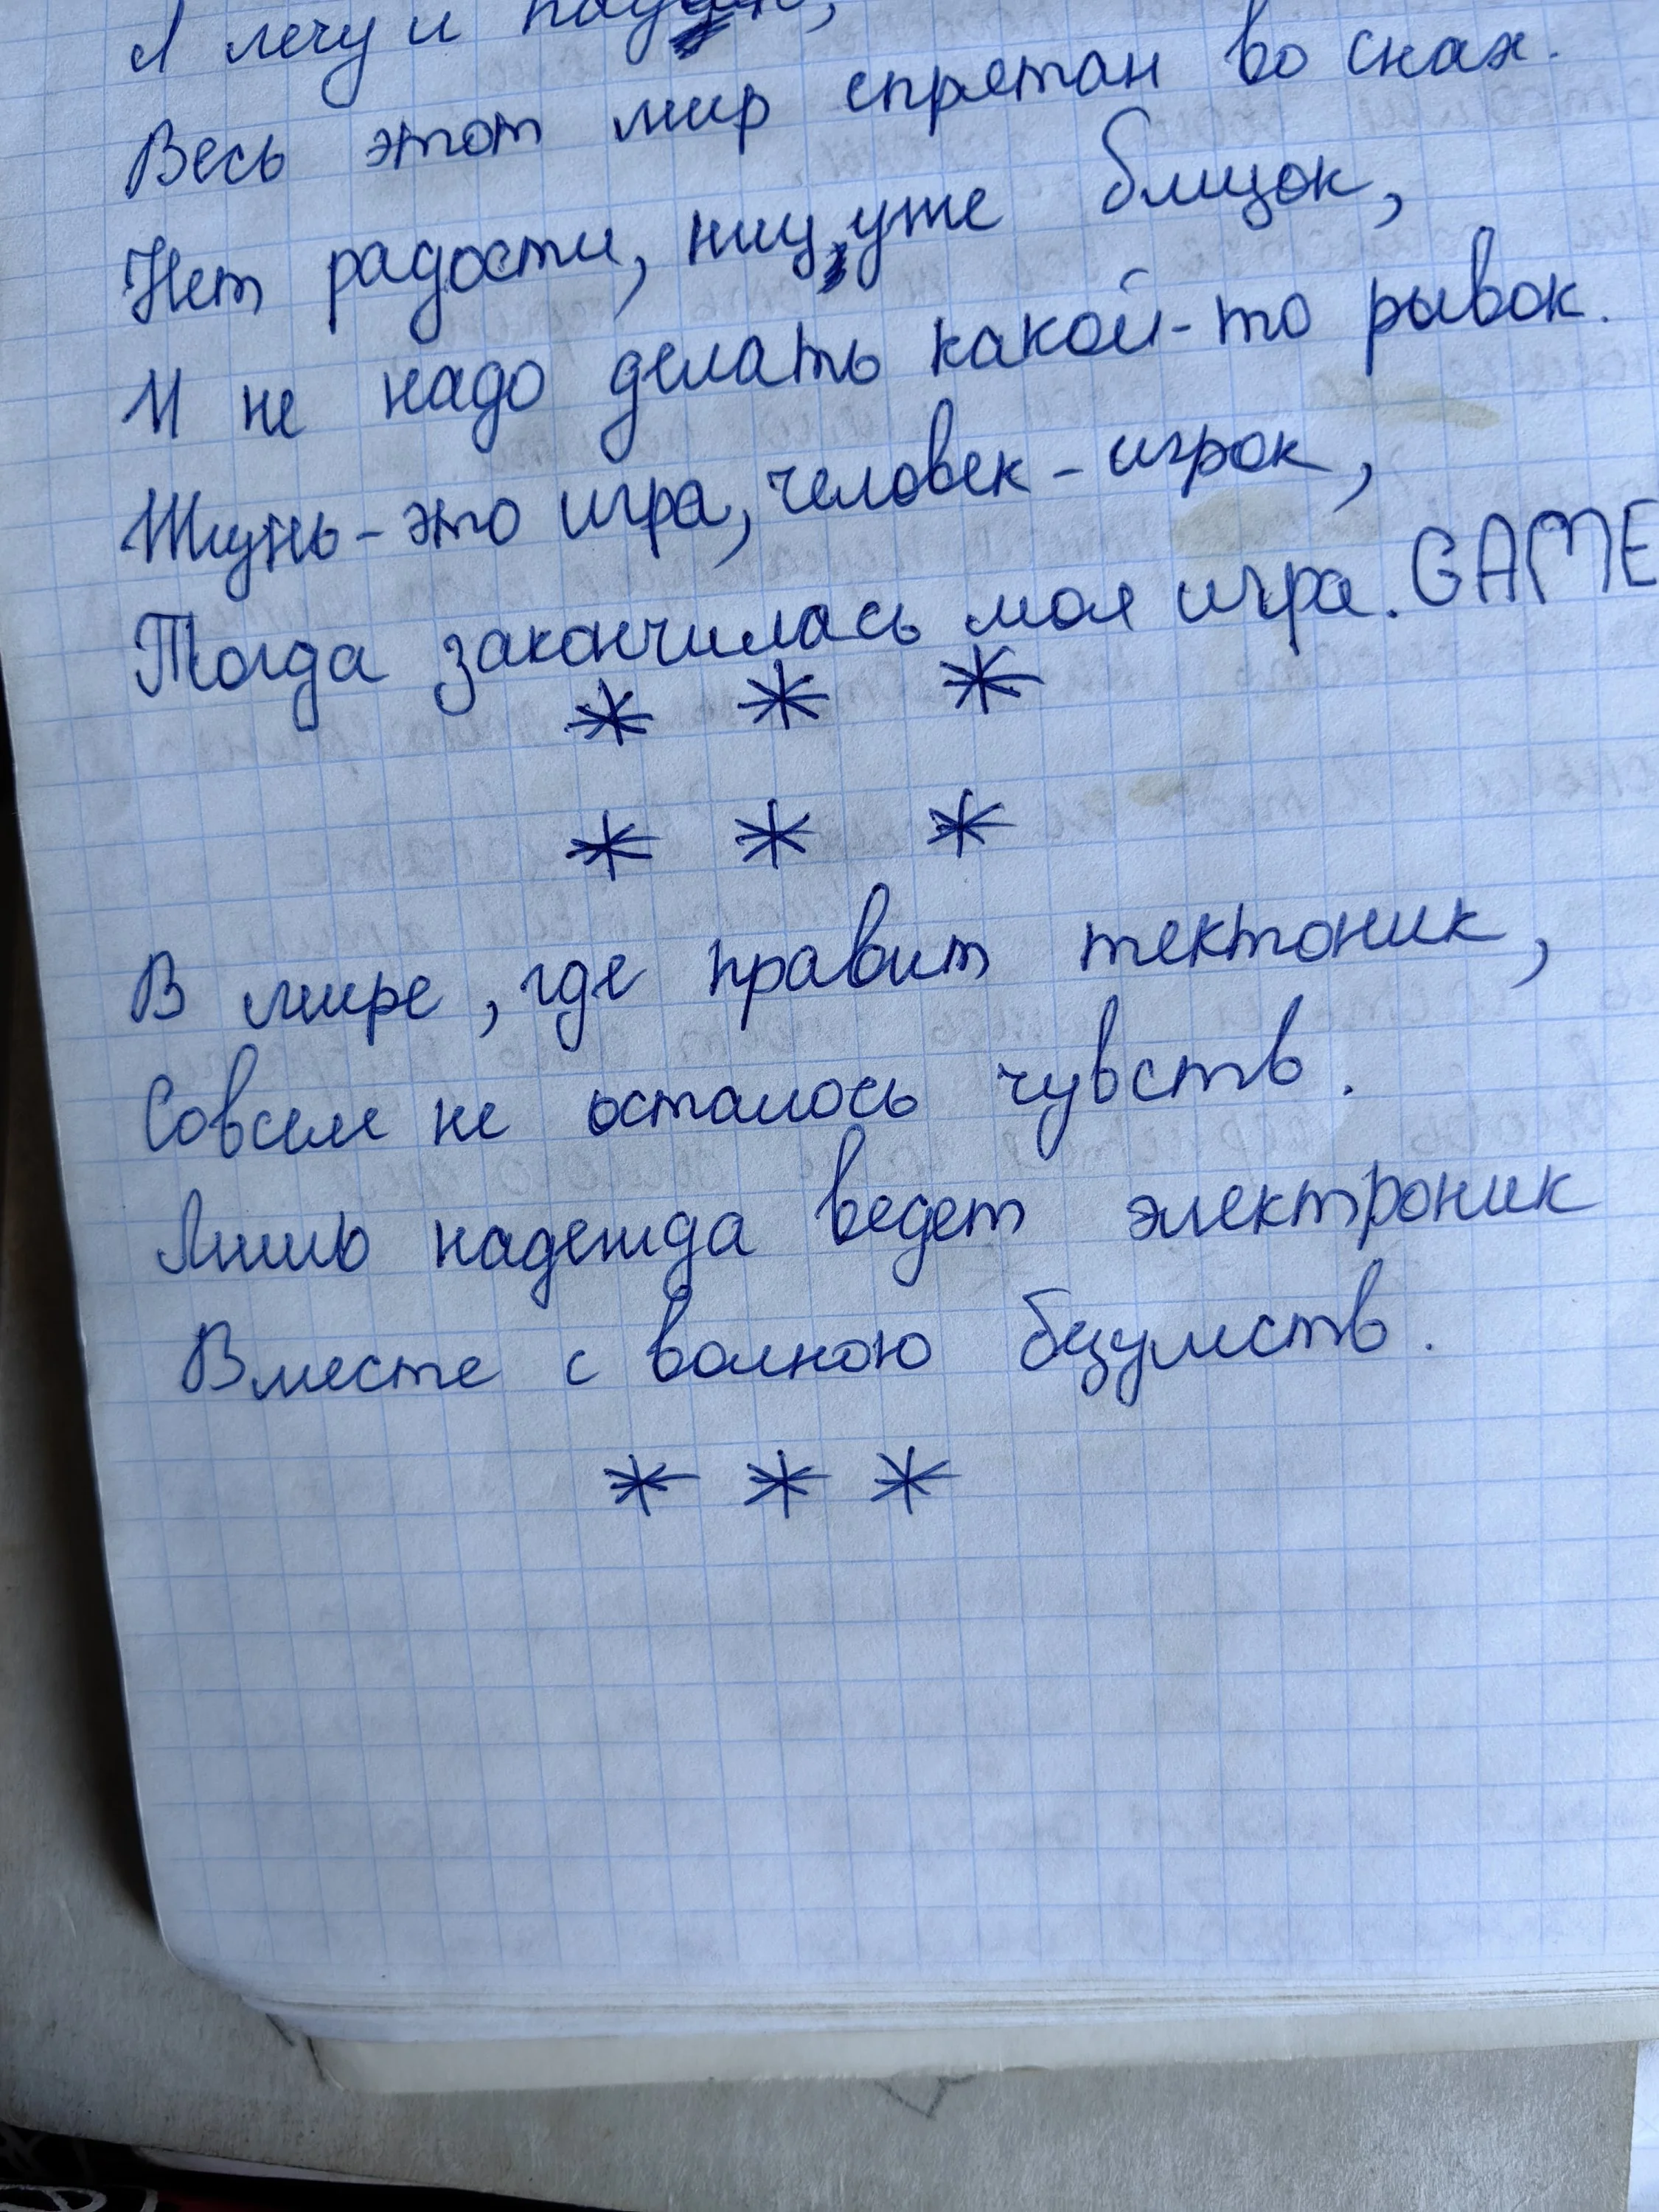 Я лечу и падаю,
Весь этот мир спрятан во снах.
Нет радости, низ уже близок,
И не надо делать какой-то рывок.
Жизнь - это игра, человек - игрок,
Тогда закончилась моя игра. GAME
* * *
* * *
В мире, где правит тектоник,
Совсем не осталось чувств.
Лишь надежда ведет электроник
Вместе с волною безумств.
* * *